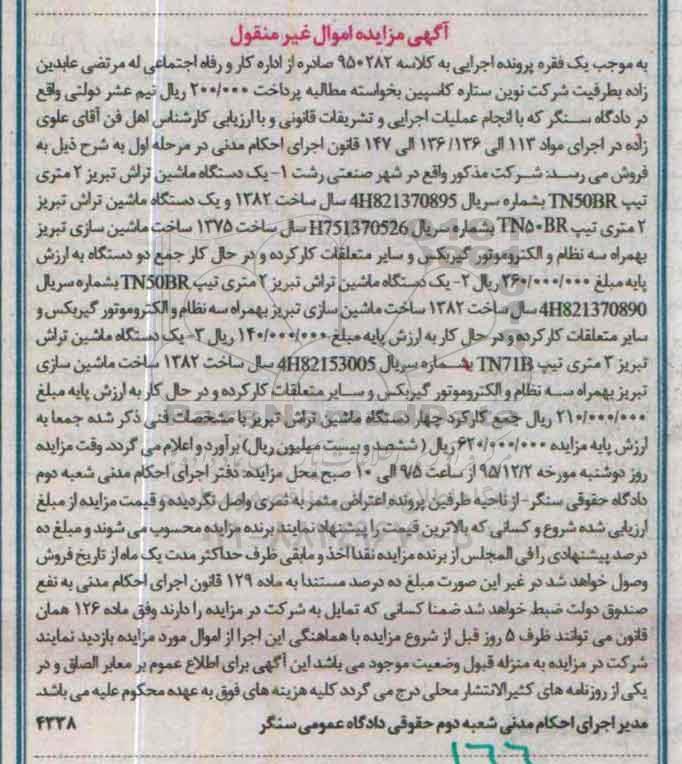 آگهی مزایده اموال غیر منقول
به موجب یک فقره پرونده اجرایی به کلاسه ۹۵۰۲۸۲ صادره از اداره کار و رفاه اجتماعی له مرتضی عابدین
زاده بطرفیت شرکت نوین ستاره کاسپین بخواسته مطالبه پرداخت ۲۰۰/۰۰۰ ریال نیم عشر دولتی واقع
در دادگاه سنگر که با انجام عملیات اجرایی و تشریفات قانونی و با ارزیابی کارشناس اهل فن آقای علوی
زاده در اجرای مواد ۱۱۳ الی ۱۳۶/ ۱۳۶ الی ۱۴۷ قانون اجرای احکام مدنی در مرحله اول به شرح ذیل به
فروش می رسد: شرکت مذکور واقع در شهر صنعتی رشت ۱- یک دستگاه ماشین تراش تبریز ۲ متری
تیپ TN50BR بشماره سریال 4H821370895 سال ساخت ۱۳۸۲ و یک دستگاه ماشین تراش تبریز
۲ متری تیپ TN۵۰BR بشماره سریال H751370526 سال ساخت ۱۳۷۵ ساخت ماشین سازی تبریز
بهمراه سه نظام و الکتروموتور گیربکس و سایر متعلقات کارکرده و در حال کار جمع دو دستگاه به ارزش
پایه مبلغ ۲۶۰/۰۰۰/۰۰۰ ریال ۲- یک دستگاه ماشین تراش تبریز ۲ متری تیپ TN50BR بشماره سریال
4H821370890 سال ساخت ۱۳۸۲ ساخت ماشین سازی تبریز بهمراه سه نظام و الکتروموتور گیربکس و
سایر متعلقات کارکرده و در حال کار به ارزش پایه مبلغ ۱۴۰/۰۰۰/۰۰۰ ریال ۳- یک دستگاه ماشین تراش
تبریز ۳ متری تیپ TN71B بشماره سریال 4H82153005 سال ساخت ۱۳۸۲ ساخت ماشین سازی
تبریز بهمراه سه نظام و الکتروموتور گیربکس و سایر متعلقات کارکرده و در حال کار به ارزش پایه مبلغ
۲۱۰/۰۰۰/۰۰۰ ریال جمع کارکرد چهار دستگاه ماشین تراش تبریز با مشخصات فنی ذکر شده جمعا به
ارزش پایه مزایده ۶۲۰/۰۰۰/۰۰۰ ریال ( ششصد و بیست میلیون ریال) برآورد و اعلام می گردد. وقت مزایده
روز دوشنبه مورخه ۹۵/۱۲/۲ از ساعت ۹/۵ الی ۱۰ صبح محل مزایده: دفتر اجرای احکام مدنی شعبه دوم
دادگاه حقوقی سنگر- از ناحیه طرفین پرونده اعتراض مثمر به ثمری واصل نگردیده و قیمت مزایده از مبلغ
ارزیابی شده شروع و کسانی که بالاترین قیمت را پیشنهاد نمایند برنده مزایده محسوب می شوند و مبلغ ده
درصد پیشنهادی را فی المجلس از برنده مزایده نقدا اخذ و مابقی ظرف حداکثر مدت یک ماه از تاریخ فروش
وصول خواهد شد در غیر این صورت مبلغ ده درصد مستندا به ماده ۱۲۹ قانون اجرای احکام مدنی به نفع
صندوق دولت ضبط خواهد شد ضمنا کسانی که تمایل به شرکت در مزایده را دارند وفق ماده ۱۲۶ همان
قانون می توانند ظرف ۵ روز قبل از شروع مزایده با هماهنگی این اجرا از اموال مورد مزایده بازدید نمایند
شرکت در مزایده به منزله قبول وضعیت موجود می باشد این آگهی برای اطلاع عموم بر معابر الصاق و در
یکی از روزنامه های کثیرالانتشار محلی درج می گردد کلیه هزینه های فوق به عهده محکوم علیه می باشد.
مدیر اجرای احکام مدنی شعبه دوم حقوقی دادگاه عمومی سنگر ۴۳۳۸